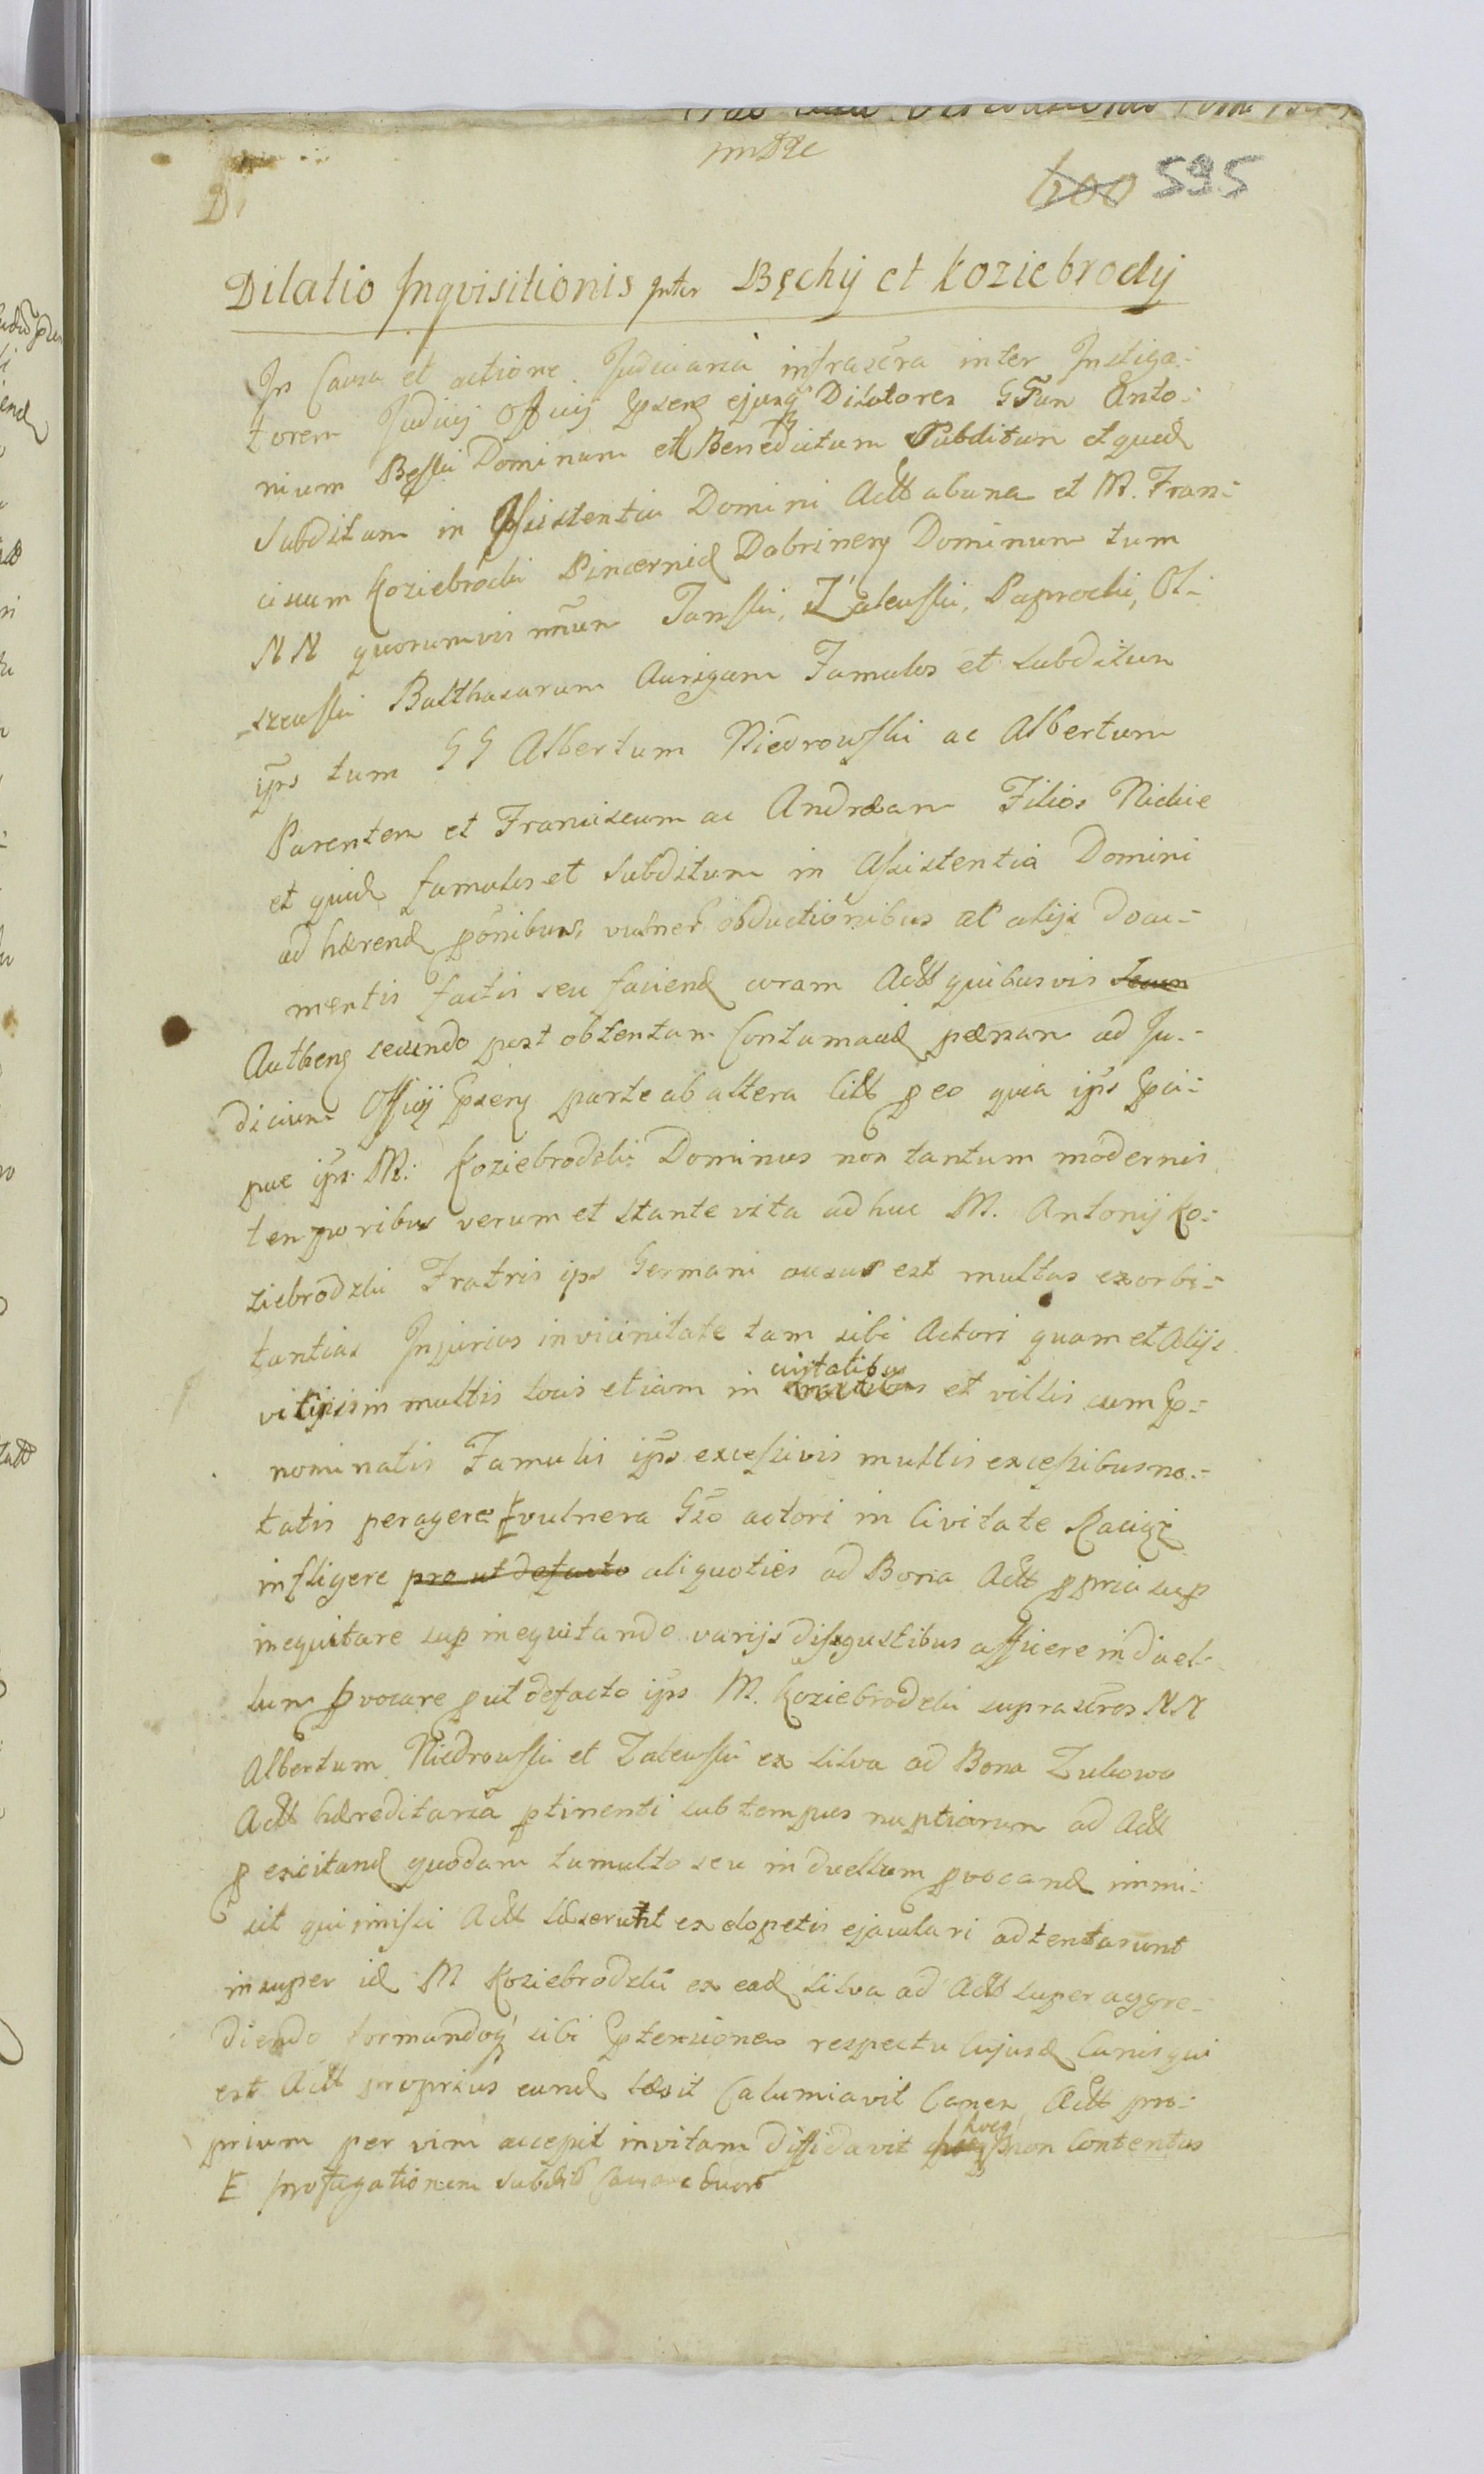 600 595
Dilatio Inqvisitionis Inter Bęchy et Koziebrody
In Causa et actione Judiciaria infrascra inter Instiga-
torem Judicij Officij ejusq Dilatores Anto-
nium Bęski Dominum et Benedictum Subditum et quod
Subditum in Assistentia Domini Act ab una et M. Fran-
ciscum Koziebrocki Pincernid Dobrinen Dominum tum
NN quorumvis Janski, Zaleuski, Paprocki, Ol-
szeuski Balthasarum Aurigam Famulos et subditum
ips tum GG Albertum Niedrowski ac Albertum
Parentem et Franciscum ac Andream Filios Nickie
et quid famulos et subditum in Assistentia Domini
ad hærend ponibus vulner obductionibus et alijs docu-
mentis factis seu faciend coram Act quibusvis
Authen secundo post obtentam Contumacid pænam ad Ju-
dicium Officij parte ab altera Citt p eo quia ips
pue ips M: Koziebrodzki Dominus non tantum modernis
temporibus verum et stante vita adhuc M. Antonij Ko-
ziebrodzki Fratris ips Germani ausus est multas exorbi-
tantias Injurias in vicinitate tam sibi Actori quam et Alijs
in multis locis etiam in civitatibus et villis cum p-
nominatis Famulis ips excessivis multis excessibus no-
tatis peragere vulnera Gso actori in Civitate Raciąż
infligere pro ut defacto aliquoties ad Bona Act ppria sup
inequitare sup inequitando varijs disgustibus afficere in duel-
lum pvocare put defacto ips M. Koziebrodzki suprascros NN
Albertum Niedrowski et Zaleuski ex silva ad Bona Zukowo
Act hæreditaria ptinenti sub tempus nuptiarum ad Act
p excitand quodam tumulto seu in duellum pvocand immi-
sit qui imissi Act læserunt ex slopetis ejaculari adtentarunt
insuper id M Koziebrodzki ex ead silva ad Act super aggre-
diendo formandoq sibi ptensiones respectu Cujusd Canis qui
est Act proprius eund læsit Calumiavit Canem Act pro-
prium per vim accepit invitam diffidavit hocq non Contentus
profugationem subdit